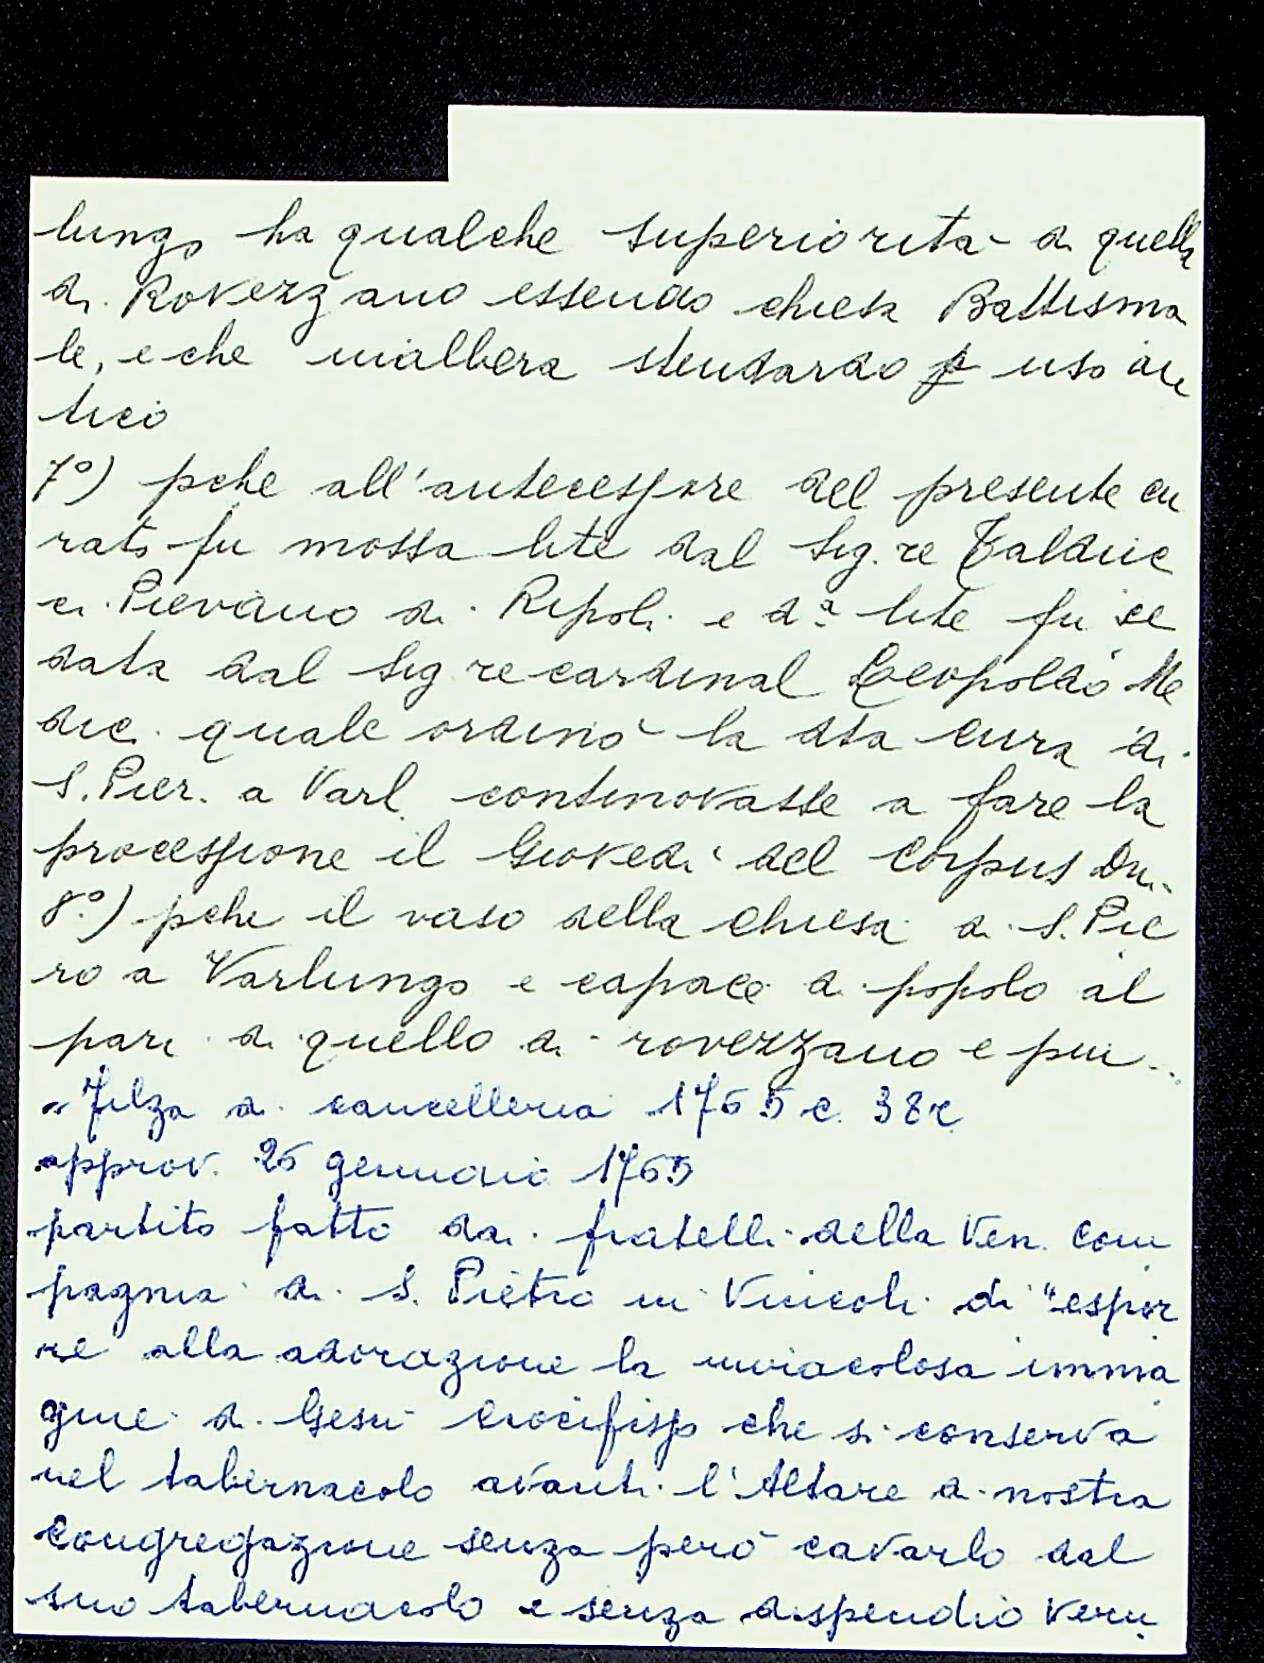 lungo ha qualche superiorità di quella
di Rovezzano essendo chiesa Battisma
le, e che inalbera stendardo p uso an
tico
7°) pche all'antecessore del presente cu
rato fu mossa lite dal Sig.re Talduc
ci Pievano di Ripoli e d.ª lite fu se
data dal Sig re cardinal Leopoldo Me
dici quale ordinò la dta cura di
S. Pier. a Varl. continovasse a fare la
processione il Giovedì del Corpus Dni.
8°.) pche il vaso della Chiesa di S. Pie
ro a Varlungo e capace di popolo al
pari di quello di rovezzano e piu ...
" Filza di cancelleria 1765 c. 38r
approv. 26 gennaio 1765
partito fatto dai fratelli della Ven. Com
pagnia di S. Pietro in Vincoli di "espor
re alla adorazione la miracolosa imma
gine di Gesù Crocifisso che si conserva
nel tabernacolo avanti l'Altare di nostra
Congregazione senza però cavarlo dal
suo tabernacolo e senza dispendio veru